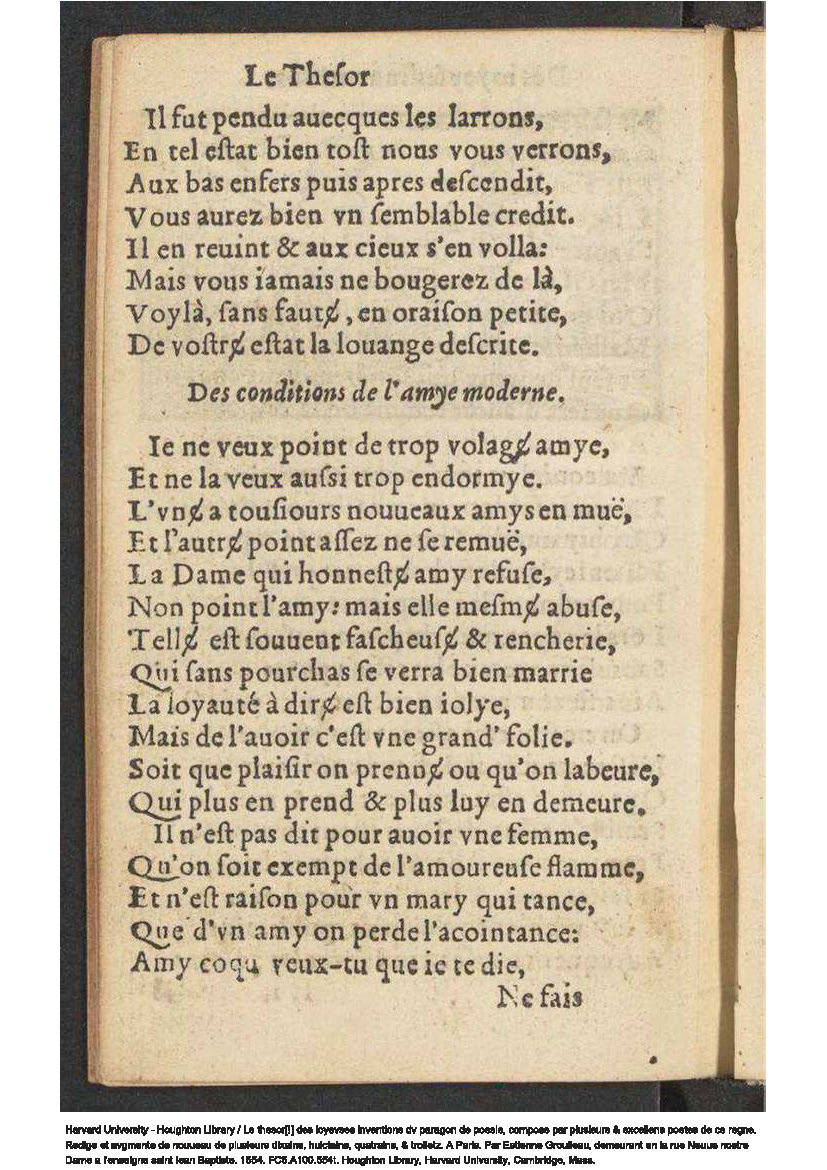 Le Theſor
Il fut pendu auecques les larrons,
En tel eſtat bien toſt nous vous verrons,
Aux bas enfers puis apres deſcendit,
Vous aurez bien vn ſemblable credit.
Il en reuint & aux cieux s'en volla:
Mais vous iamais ne bougerez de là,
Voylà, ſans fautɇ, en oraiſon petite,
De voſtrɇ eſtat la louange deſcrite.
Des conditions de l'amye moderne.
Ie ne veux point de trop volagɇ amye,
Et ne la veux auſsi trop endormye.
L'vnɇ a touſiours nouueaux amys en muë,
Et l'autrɇ point aſſez ne ſe remuë,
La Dame qui honneſtɇ amy refuſe,
Non point l'amy: mais elle meſmɇ abuſe,
Tellɇ eſt ſouuent faſcheuſɇ & rencherie,
Qui ſans pourchas ſe verra bien marrie
La loyauté à dirɇ eſt bien iolye,
Mais de l'auoir c'eſt vne grand' folie.
Soit que plaiſir on prennɇ ou qu'on labeure,
Qui plus en prend & plus luy en demeure.
Il n'eſt pas dit pour auoir vne femme,
Qu'on ſoit exempt de l'amoureuſe flamme,
Et n'eſt raiſon pour vn mary qui tance,
Que d'vn amy on perde l'acointance:
Amy coqu veux-tu que ie te die,
Ne fais
Harvard University - Houghton Library / Le thesor[!] des ioyevses inventions dv paragon de poesie, compose par plusieurs & excellens poetes de ce regne.
Redige et avgmente de nouueau de plusieurs dixains, huictains, quatrains, & triolletz. A Paris. Par Estienne Groulleau, demeurant en la rue Neuue nostre
Dame a l'enseigne saint Iean Baptiste. 1554. FC5.A100.554t. Houghton Library, Harvard University, Cambridge, Mass.